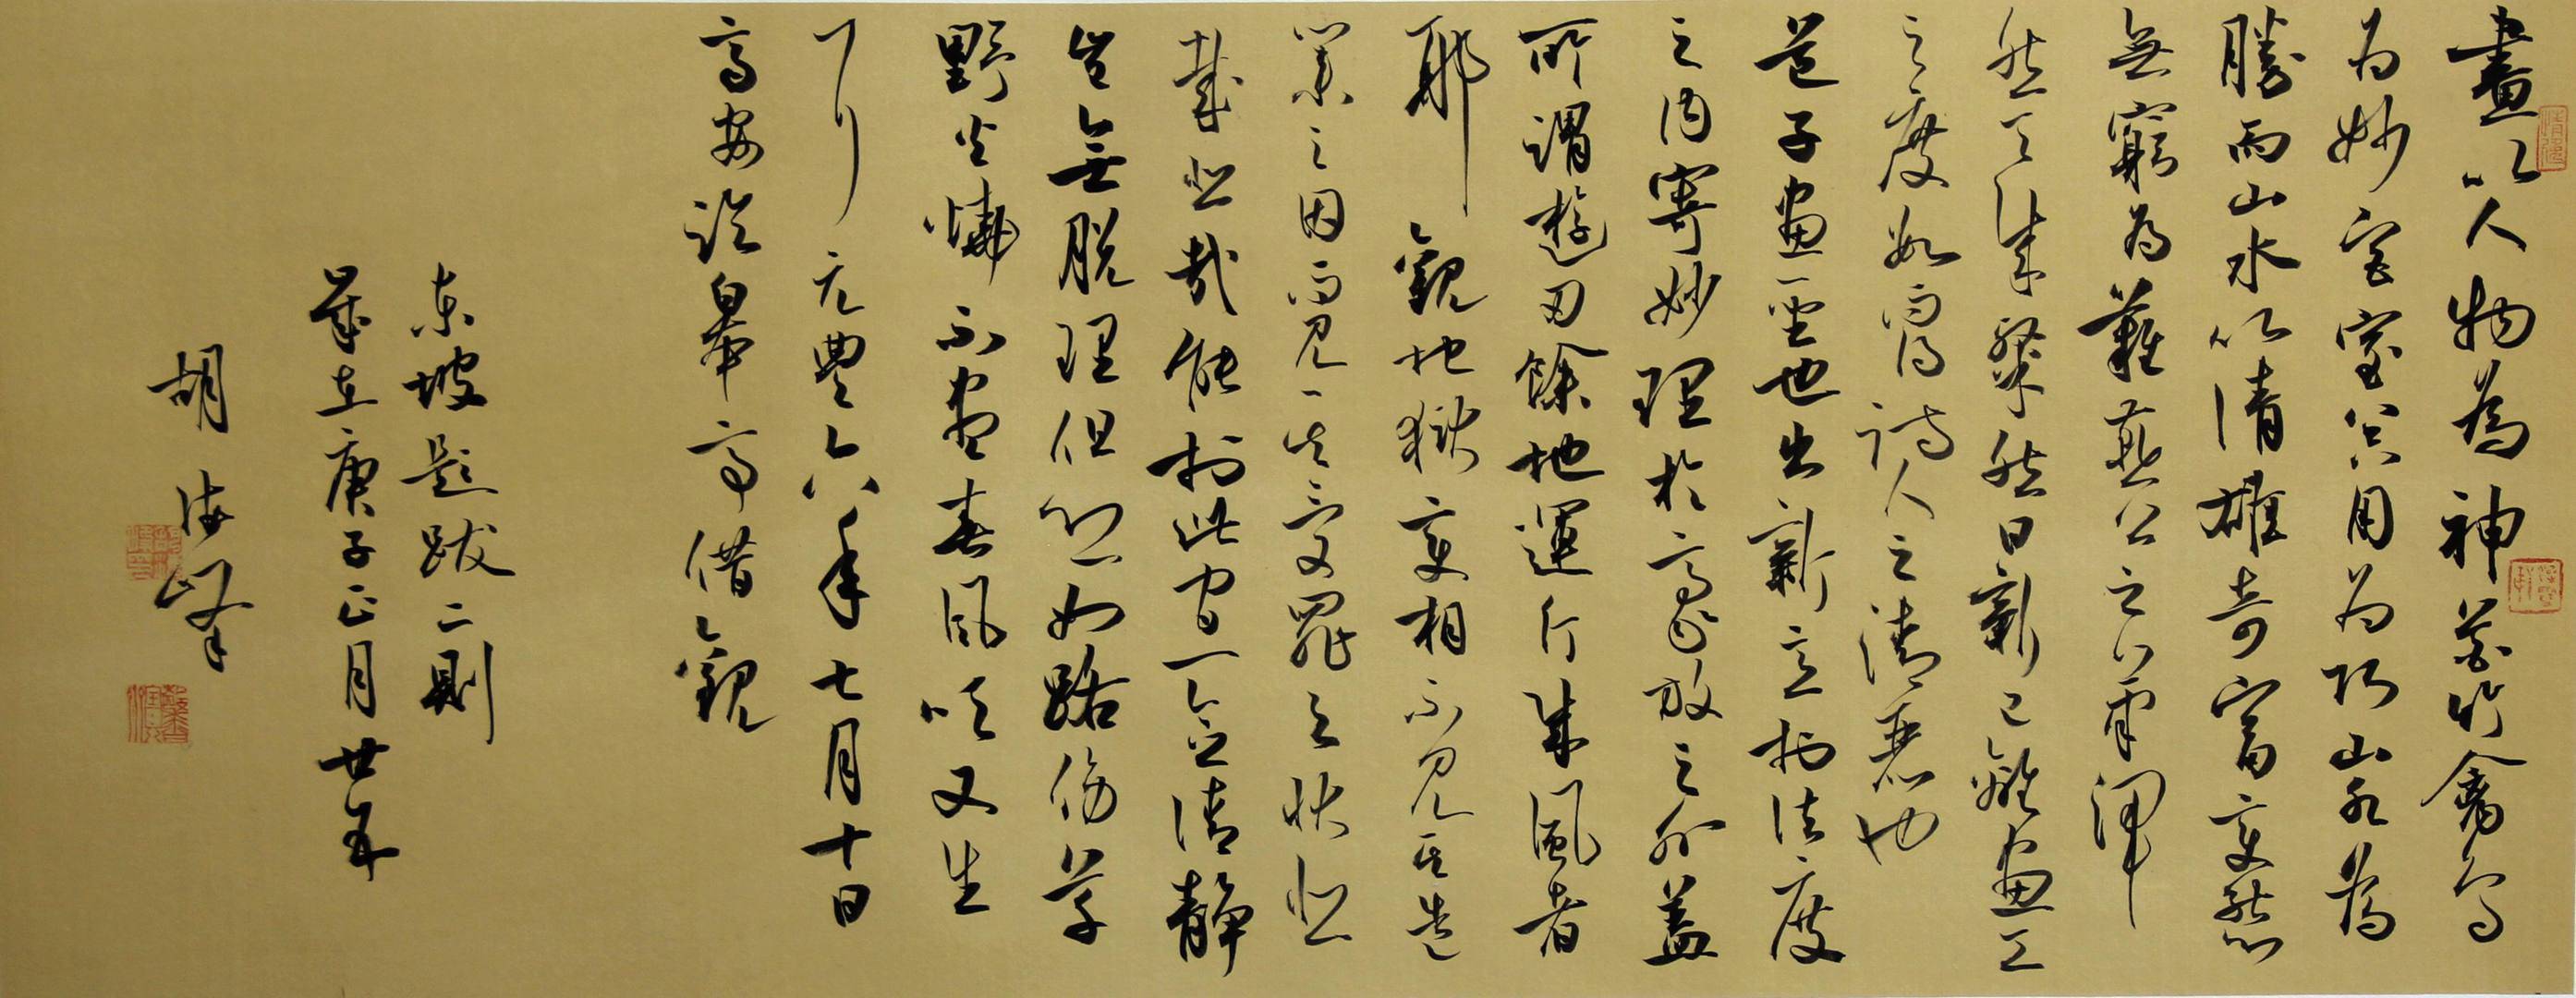 畫以人物為神花竹禽鳥
為妙宮室器用為巧山水為
勝而山水以清雄奇富變態
無窮為難燕公之筆渾
然天成粲然日新已離畫工
之度數而得詩人之清麗也
道子畫聖也出新意於法度
之內寄妙理於豪放之外蓋
所謂遊刃餘地運斤成風者
耶 觀地獄變相不見其造
業之因而見其受罪之狀悲
哉悲哉能於此間一念清靜
豈無脫理但恐如路傍草
野火燒不盡春風吹又生
耳 元豐六年七月十日
齊安臨皋亭借觀
東坡題跋二則
歲在庚子正月廿五
胡海峰